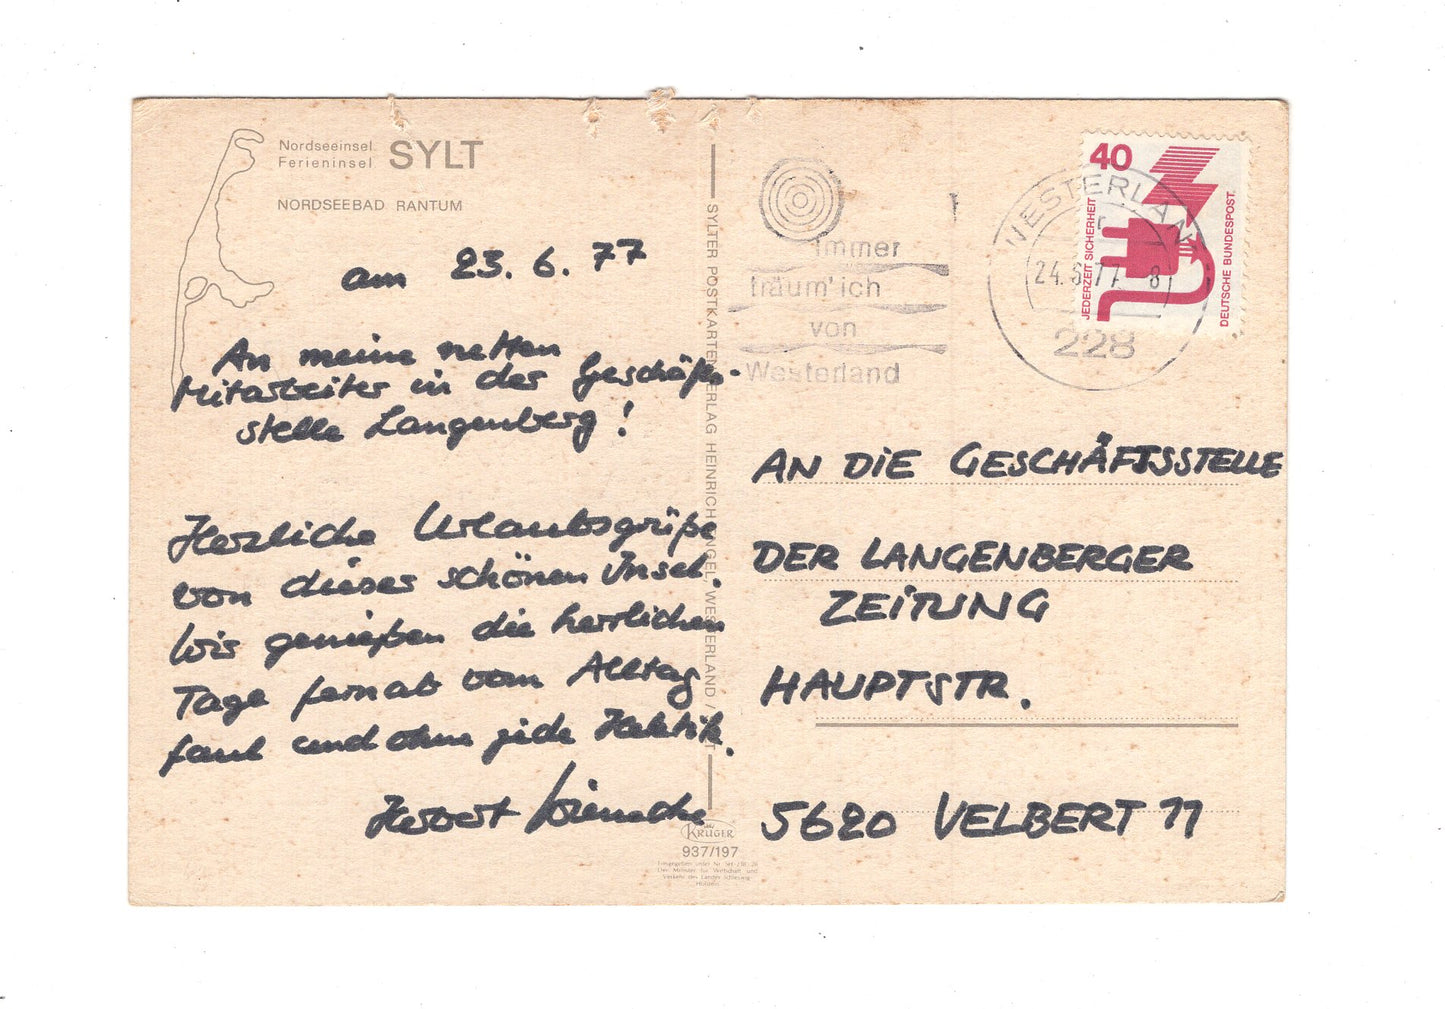 Nordseeinsel
Ferieninsel SYLT
NORDSEEBAD RANTUM
am 23.6.77
An meine netten
Mitarbeiter in der Geschäfts-
stelle Langenberg!
Herzliche Urlaubsgrüße
von dieser schönen Insel.
Wir genießen die herrlichen
Tage fernab vom Alltag
faul und ohne jede Hektik.
Herbert
SYLTER POSTKARTENVERLAG HEINRICH ENGEL, WESTERLAND /
KRÜGER
937/197
Freigegeben unter Nr. SH
Der Minister für Wirtschaft und
Verkehr des Landes Schleswig-
Holstein
immer
träum' ich
von
Westerland
WESTERLAND
24.6.77 - 8
228
40
JEDERZEIT SICHERHEIT
DEUTSCHE BUNDESPOST
AN DIE GESCHÄFTSSTELLE
DER LANGENBERGER
ZEITUNG
HAUPTSTR.
5620 VELBERT 11